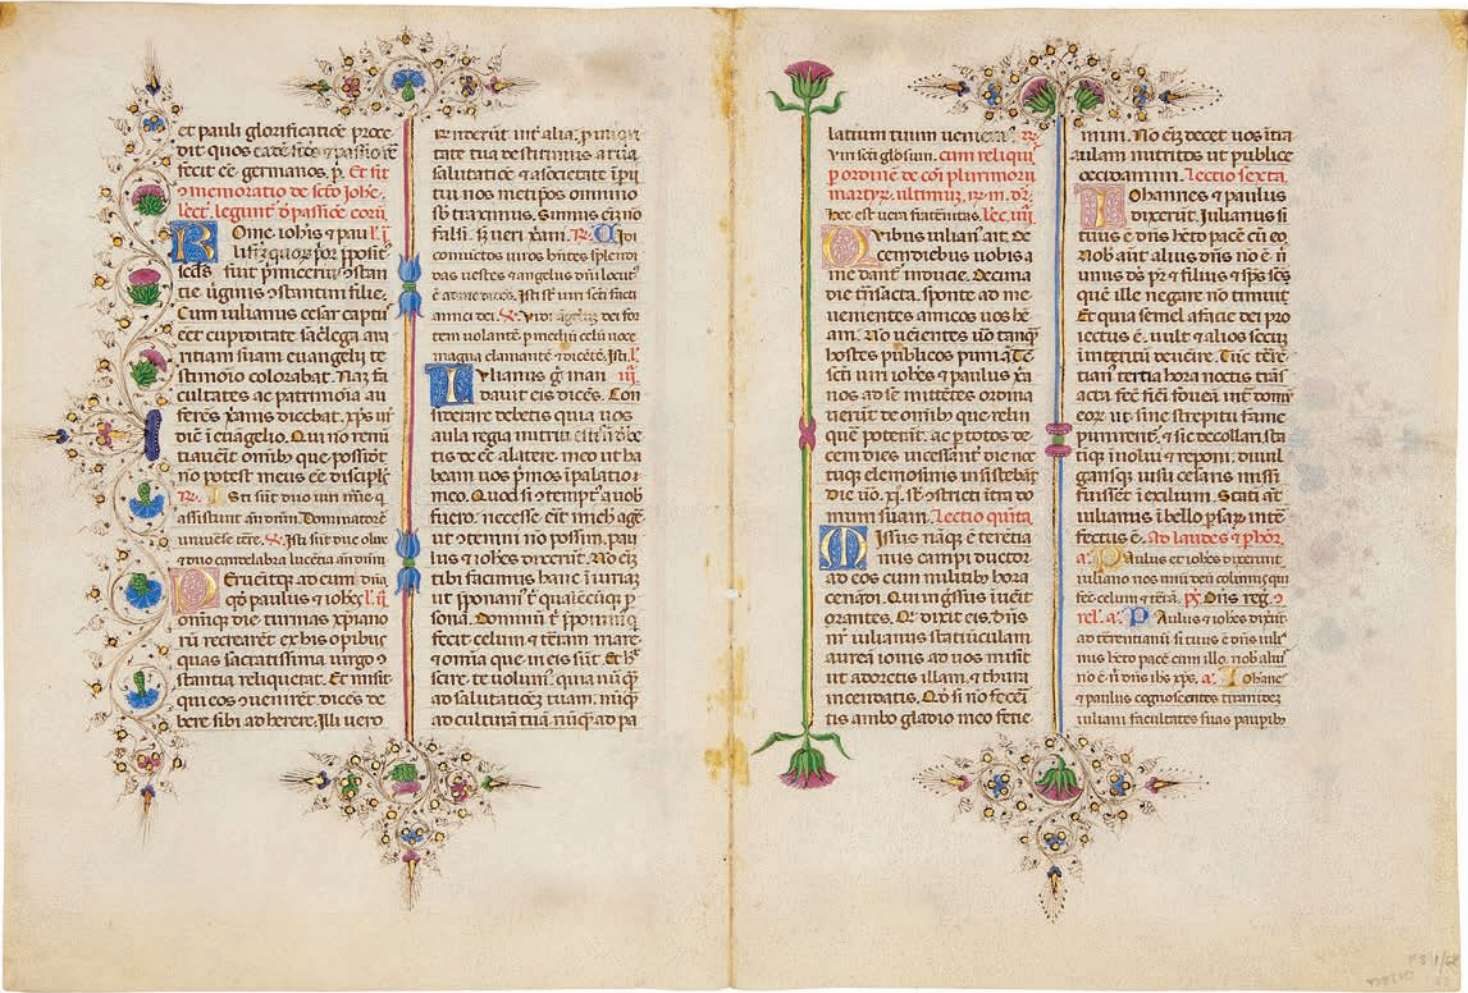 et pauli glorificatiōē proce
dit quos eadē fides ⁊ passio vē
fecit eē germanos. p̄. Et fit
ꝯmemoratio de scto Johē.
lect̄. legunt̄ d̓ passiōe eorū
Rome. iohīs ⁊ pauli l. ī
fuit p̄micerius ꝯstan
tie ūginis ꝯstantini filie.
Cum iulianus cesar captu
eēt cupiditate sac̄lega ava
ritiam suam euangelij te
stimōio colorabat. Nam fa
cultates ac patrimōia au
ferēs xp̄ianis dicebat. xp̄s in
dic̄ ī euāgelio. Qui nō renū
tiauerit omīb; que possidt
nō potest meus eē discipl̓s
℞. Isti sūt duo uiri mīe q̄
assistunt an̄ dn̄m. Dominatorē
uniuēse tēre. ℣. Isti sūt due oliue
⁊ duo candelabra lucētia an̄ dn̄m
Deruēitq; ad eum
qd̓ paulus ⁊ iohēs l. ij.
omīq; die turmas xp̄iano
rū recrearēt ex his opibus
quas sacratissima uirgo ꝯ
stantia reliquerat. Et misit
qui eos ꝯuenirēt dicēs de
bere sibi adherere. Illi uero
tate tua destitimus a tua
salutatiōe ⁊ asocietate īpij
tui nos metip̄os omnino
sb̓traximus. Sumus eī nō
falsi. s; ueri xp̄iani. ℞. Vidi
coniuctos uiros hn̄tes splendi
das uestes ⁊ angelus dn̄i locut̓
ē ad me dicēs. Isti st̄ uiri scī facti
amici dei. ℣. Vidi āgelū dei for
tem volantē p mediū celū uoce
magna clamantē ⁊ dicētē. Isti. l.
Iulianus g̓ man iij.
dauit eis dicēs. Con
siderare debetis quia uos
aula regia
tis deēē alatere meo ut ha
beam uos p̄mos īpalatio
meo. Quod si ꝯtempt̓ a uob
fuero. necesse ēit mich̓ age
ut ꝯtemni nō possim. pau
lus ⁊ iohēs dixerūt. Nō eī
tibi facimus hanc ī iuriaȝ
ut
sonā. Domīnū
fecit celum ⁊ tēram mare
⁊ omīa que in eis sūt. Et
scire te uolum̓. quia nūq̄
ad salutatiōeȝ tuam. nūq̄
ad culturā tuā. nūq̄ ad pa
latium tuum ueniemus. ℞.
Viri scti glōsum. cum reliqui
p ordinē de cōi plurimorū
martyȝ. ultimuȝ. ℞. m. dȝ.
hec est uera fraternitas. lec. iiij.
Quibus iulian̓ ait. De
cem diebus uobis a
me dant̄ inducie. Decima
die tn̄sacta. sponte ad me
uenientes amicos uos hē
am. Nō ueientes uō tanq̄
hostes publicos
scti uiri iohēs ⁊ paulus xp̄ia
nos ad se mittētes ordina
uerūt de omīb; que relin
quē poterāt. ac p totos de
cem dies uicessant̄ die noc
tuq; elemosinis insistebāt
die uō. xj. st̄ ꝯstricti ītra do
mum suam. Lectio quīta.
Missus nāq; ē terētia
nus campi ductor
ad eos cum militib; hora
cenādi. Qui ingr̄ssus īuēit
orantes. Qr̄ dixit eis. dn̄s
nr̄ iulianus statiūculam
aureā iouis ad uos misit
ut adoretis illam. ⁊ thura
incendatis. Qd̓ si nō fecei
tis ambo gladio meo ferie
mini. Nō eī decet uos ītra
aulam nutritos ut publice
occidamini. Lectio sexta.
Iohannes ⁊ paulus
dixerūt. Iulianus si
tuus ē dn̄s hēto pacē cū eo.
Nob aūt alius dn̄s nō ē. n̄
unus ds̄ pr̄ ⁊ filius ⁊ sp̄s scs̄
quē ille negare nō timuit
Et quia semel afacie dei pro
iectus ē. uult ⁊ alios secū
ī interitū deueīre. Tūc tēre
tian̓ tertia hora noctis trās
acta fēc fiēi foueā int̓ domū
eoȝ ut sine strepitu fame
punirent̄. ⁊ sic decollari sta
tiq; inolui ⁊ reponi. diuul
gansq; uisu cesaris missi
fuissēt ī exilium. Stati at̄
iulianus ī bello psaȝ inte
fectus ē. Ad laudes ⁊ p hor̄.
a. Paulus et iohēs dixerunt
iuliano nos unū deū colimus qui
fēc celum ⁊ tērā. ps̄. Dn̄s reg. ꝯ
rel. a. Paulus ⁊ iohēs dixūt
ad tērentianū si tuus ē dn̄s iuli
nus hēto pacē cum illo. nob alius
nō ē n̄ dn̄s ihs xp̄s. a. Iohane
⁊ paulus cognoscentes tiranideȝ
iuliani facultates suas paupib;